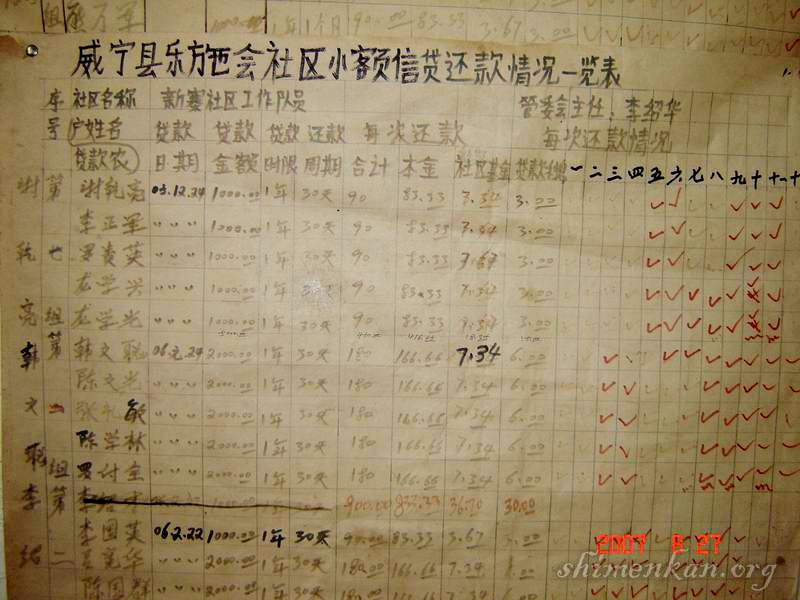 1年1个月 90.00 83.33 3.67 3.00
威宁县乐施会社区小额信贷还款情况一览表
序 社区名称 新寨社区工作队员 管委会主任:李绍华
号 户姓名 贷款 贷款 贷款 还款 每次还款 每次还款情况
贷款农 日期 金额 时限 周期 合计 本金 社区基金 一 二 三 四 五 六 七 八 九 十 十一 十
谢 第 谢乾亮 05.12.24 1000.00 1年 30天 90 83.33 7.34 3.00
李正军 〃 〃 〃 1000.00 1年 30天 90 83.33 7.34 3.00
乾 七 罗贵英 〃 〃 〃 1000.00 1年 30天 90 83.33 7.67 3.00
龙学兴 〃 〃 〃 1000.00 1年 30天 90 83.33 7.34 3.00
亮 组 龙学光 〃 〃 〃 1000.00 1年 30天 90 83.33 7.34 3.00
韩 第 韩文聪 2000.00 1年 30天 180 166.66 7.34 6.00
陈文光 〃 〃 〃 2000.00 1年 30天 180 166.66 7.34 6.00
文 一 张礼敏 〃 〃 〃 2000.00 1年 30天 180 166.66 7.34 6.00
陈学林 〃 〃 〃 2000.00 1年 30天 180 166.66 7.34 6.00
聪 组 〃 〃 〃 2000.00 1年 30天 180 166.66 7.34 6.00
李 第 900.00 833.33 36.70 30.00
李国英 06.2.22 1000.00 1年 30天 90.00 83.33 3.67 3.00
绍 二 〃 〃 〃 2000.00 1年 30天 180.00 166.66 7.34 6.00
陈国群 〃 〃 〃 2000.00 1年 30天
2007 8 27
shimenkan.org